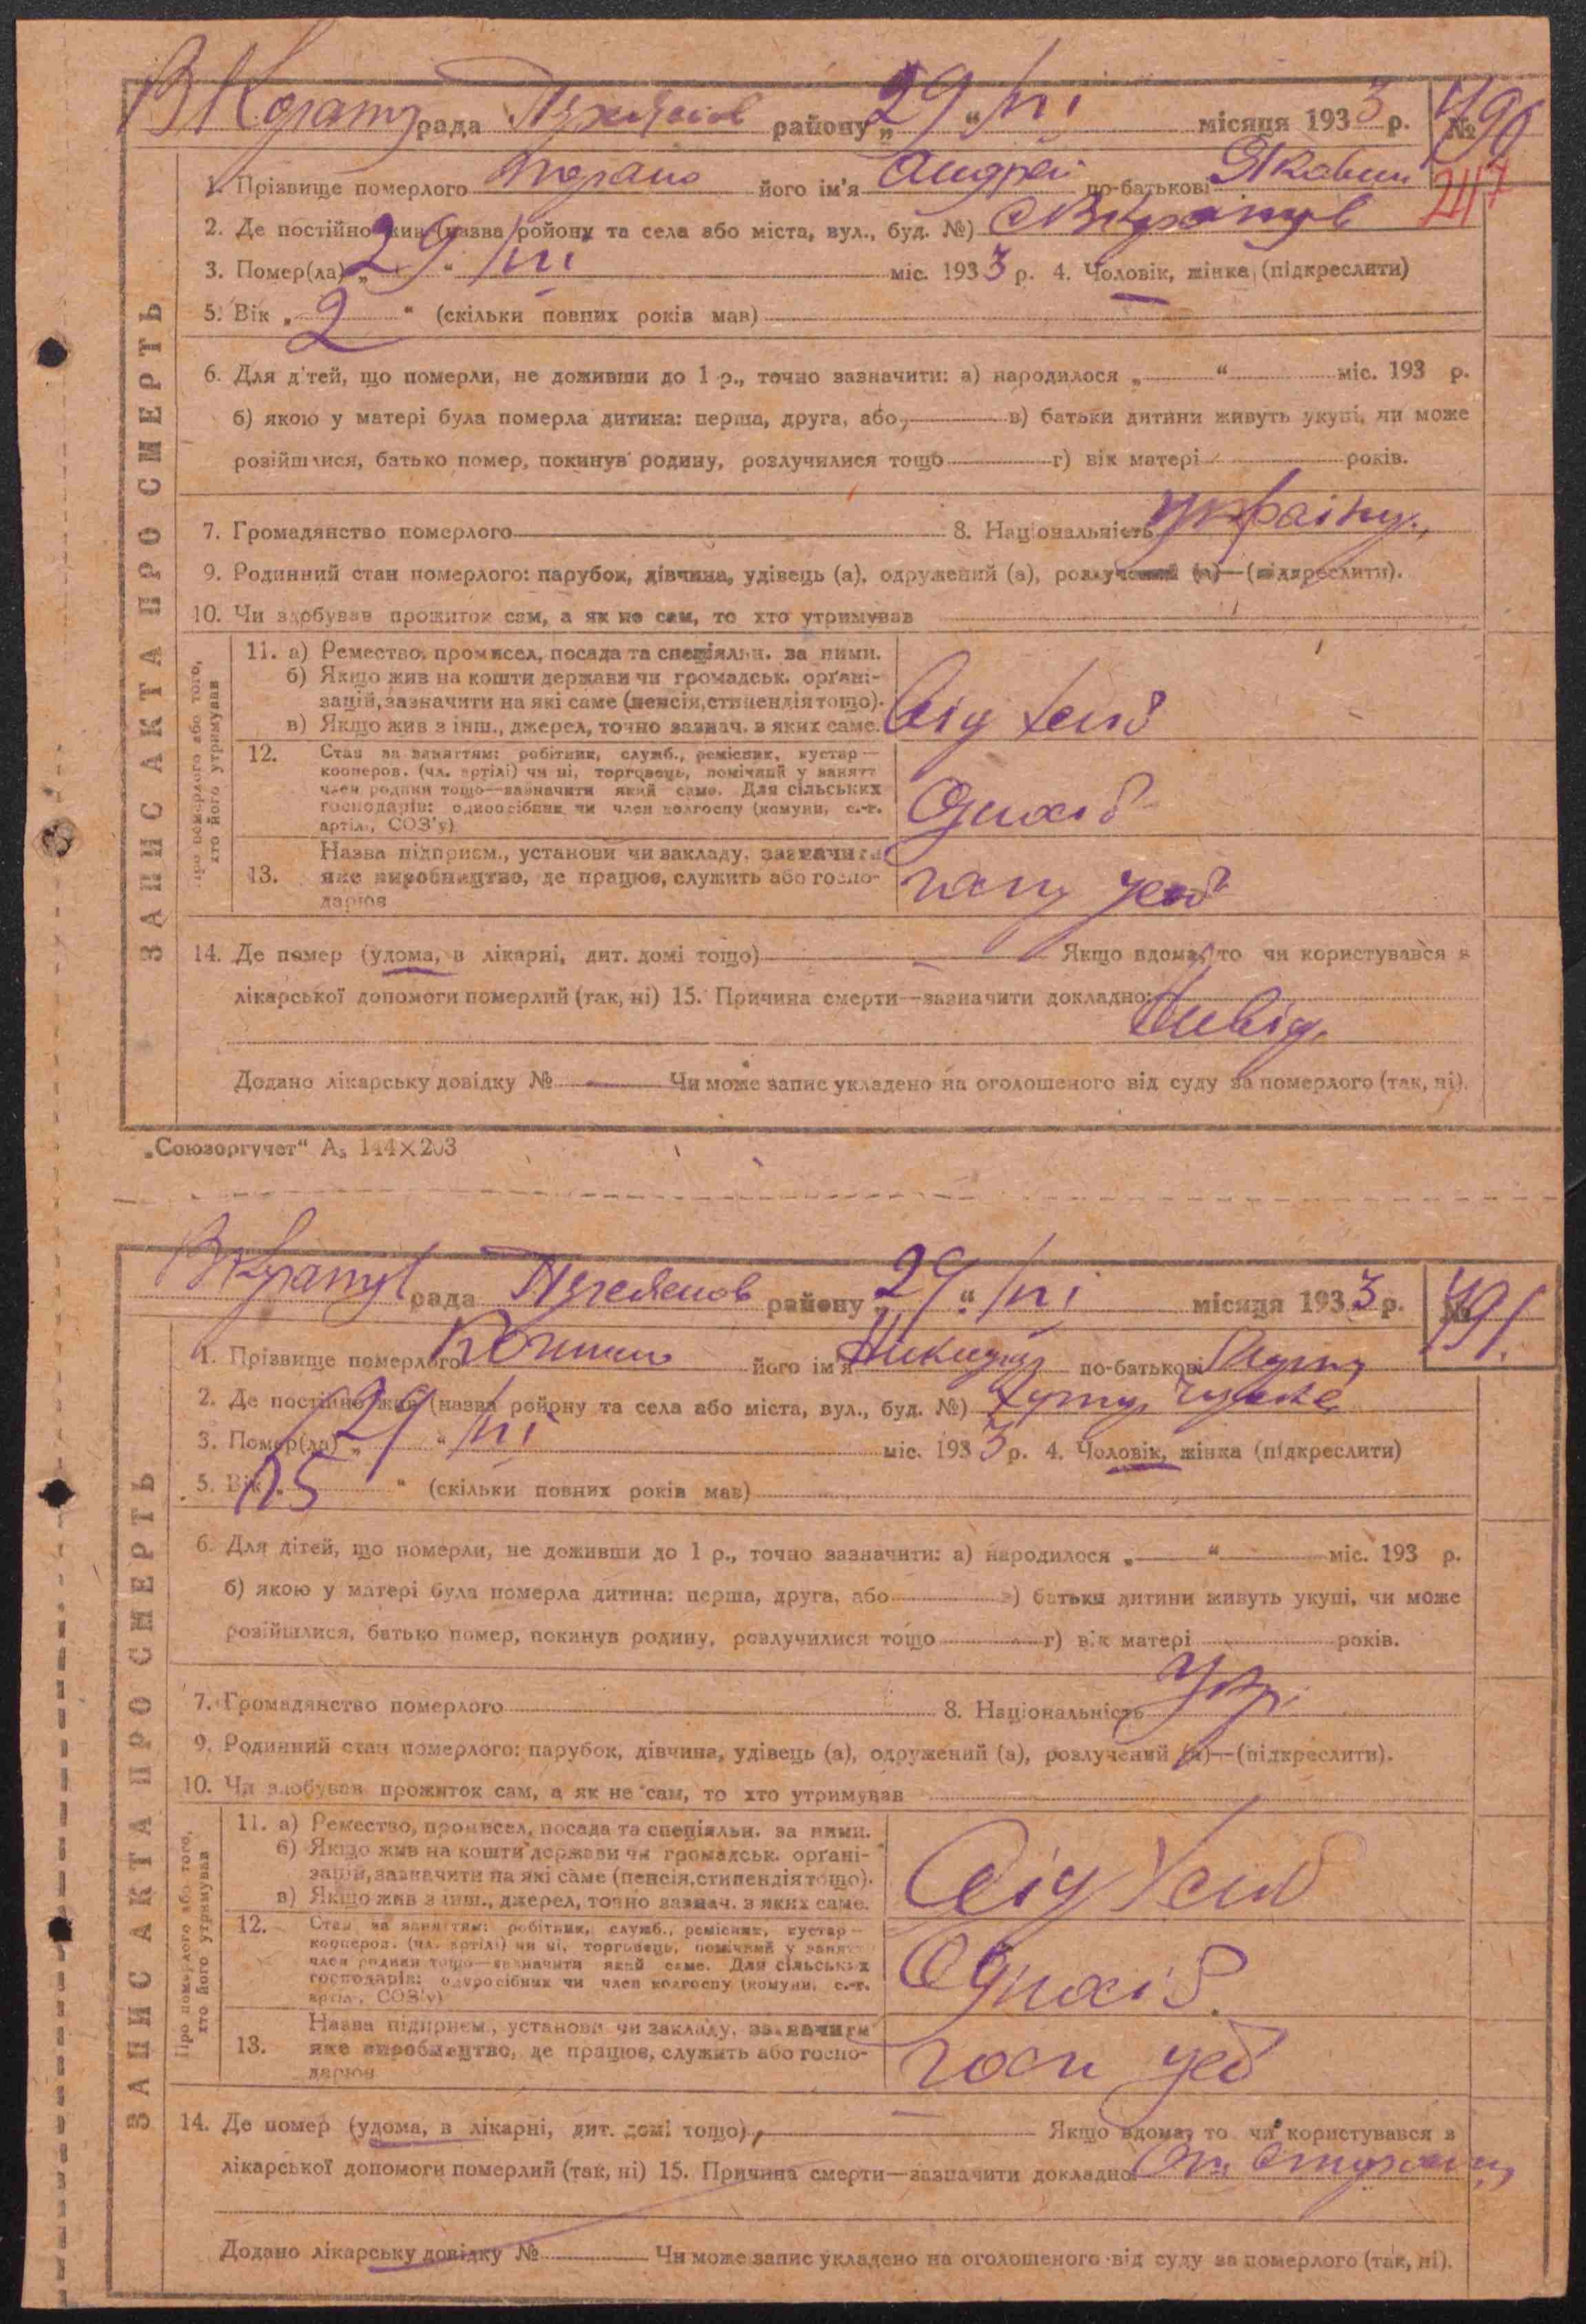 рада районуу „29“ / VI місяця 1933 р. № 490
247
1. Прізвище померлого його ім'я Андрей по-батькові Якович
2. Де постійно жив (назва ройону та села або міста, вул., буд. №)
3. Помер(ла) „29“ / VI міс. 1933 р. 4. Чоловік, жінка (підкреслити)
5. Вік „2“ (скільки повних років мав)
6. Для дітей, що померли, не доживши до 1 р., точно зазначити: а) народилося „ “ міс. 193 р.
б) якою у матері була померла дитина: перша, друга, або в) батьки дитини живуть укупі, чи може
розійшлися, батько помер, покинув родину, розлучилися тощо г) вік матері років.
7. Громадянство померлого 8. Національність україну.
9. Родинний стан померлого: парубок, дівчина, удівець (а), одружений (а), розлучений (а)—(підкреслити).
10. Чи здобував прожиток сам, а як не сам, то хто утримував
ЗАПИС АКТА ПРО СМЕРТЬ
Про померлого або того, хто його утримував
11. а) Ремество, промисел, посада та спеціяльн. за ними.
б) Якщо жив на кошти держави чи громадськ. орґані-
зацій, зазначити на які саме (пенсія, стипендія тощо).
в) Якщо жив з інш., джерел, точно зазнач. з яких саме.
12. Стан за заняттям: робітник, служб., ремісник, кустар—
кооперов. (чл. артілі) чи ні, торговець, помічний у занятт
член родини тощо—зазначити який саме. Для сільських
господарів: одноосібник чи член колгоспу (комуни, с.-г.
артілі, СОЗ'у)
Одноос
Назва підприєм., установи чи закладу, зазначити
13. яке виробництво, де працює, служить або госпо-
дарює
14. Де помер (удома, в лікарні, дит. домі тощо) Якщо вдома, то чи користувався з
лікарської допомоги померлий (так, ні) 15. Причина смерти—зазначити докладно:
Невід.
Додано лікарську довідку № Чи може запис укладено на оголошеного від суду за померлого (так, ні).
„Союзоргучет“ А₅ 144×203
рада району „29“ / VI місяця 1933 р. № 491.
1. Прізвище померлого його ім'я по-батькові
2. Де постійно жив (назва ройону та села або міста, вул., буд. №)
3. Помер(ла) „29“ / VI міс. 1933 р. 4. Чоловік, жінка (підкреслити)
5. Вік (скільки повних років мав)
6. Для дітей, що померли, не доживши до 1 р., точно зазначити: а) народилося „ “ міс. 193 р.
б) якою у матері була померла дитина: перша, друга, або в) батьки дитини живуть укупі, чи може
розійшлися, батько помер, покинув родину, розлучилися тощо г) вік матері років.
7. Громадянство померлого 8. Національність Укр.
9. Родинний стан померлого: парубок, дівчина, удівець (а), одружений (а), розлучений (а)—(підкреслити).
10. Чи здобував прожиток сам, а як не сам, то хто утримував
ЗАПИС АКТА ПРО СМЕРТЬ
Про померлого або того, хто його утримував
11. а) Ремество, промисел, посада та спеціяльн. за ними.
б) Якщо жив на кошти держави чи громадськ. орґані-
зацій, зазначити на які саме (пенсія, стипендія тощо).
в) Якщо жив з інш., джерел, точно зазнач. з яких саме.
12. Стан за заняттям: робітник, служб., ремісник, кустар—
кооперов. (чл. артілі) чи ні, торговець, помічний у занятт
член родини тощо—зазначити який саме. Для сільських
господарів: одноосібник чи член колгоспу (комуни, с.-г.
артілі, СОЗ'у)
Одноос.
Назва підприєм., установи чи закладу, зазначити
13. яке виробництво, де працює, служить або госпо-
дарює
14. Де помер (удома, в лікарні, дит. домі тощо) Якщо вдома, то чи користувався з
лікарської допомоги померлий (так, ні) 15. Причина смерти—зазначити докладно:
Додано лікарську довідку № Чи може запис укладено на оголошеного від суду за померлого (так, ні).